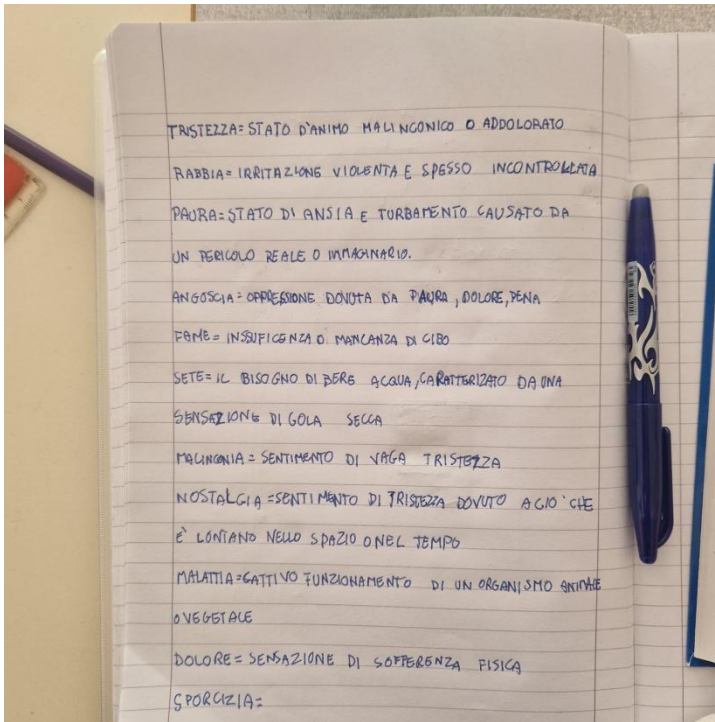 TRISTEZZA= STATO D'ANIMO MALINCONICO O ADDOLORATO
RABBIA= IRRITAZIONE VIOLENTA E SPESSO INCONTROLLATA
PAURA= STATO DI ANSIA E TURBAMENTO CAUSATO DA
UN PERICOLO REALE O IMMAGINARIO.
ANGOSCIA= OPPRESSIONE DOVUTA DA PAURA, DOLORE, PENA
FAME= INSUFICENZA O MANCANZA DI CIBO
SETE= IL BISOGNO DI BERE ACQUA, CARATTERIZATO DA UNA
SENSAZIONE DI GOLA SECCA
MALINCONIA= SENTIMENTO DI VAGA TRISTEZZA
NOSTALGIA= SENTIMENTO DI TRISTEZZA DOVUTO A CIO' CHE
E' LONTANO NELLO SPAZIO O NEL TEMPO
MALATTIA= CATTIVO FUNZIONAMENTO DI UN ORGANISMO ANIMALE
O VEGETALE
DOLORE= SENSAZIONE DI SOFFERENZA FISICA
SPORCIZIA=